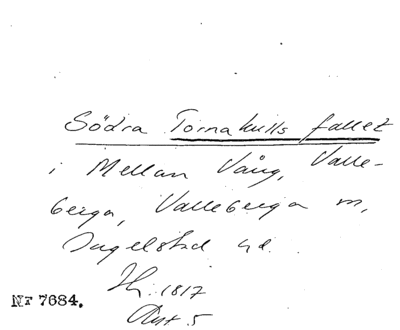 Södra Tornakulls fallet
i Mellan Vång, Valle-
berga, Valleberga sn,
Ingelstad hd.
Jh. 1817
Akt. 5
Nr 7684.